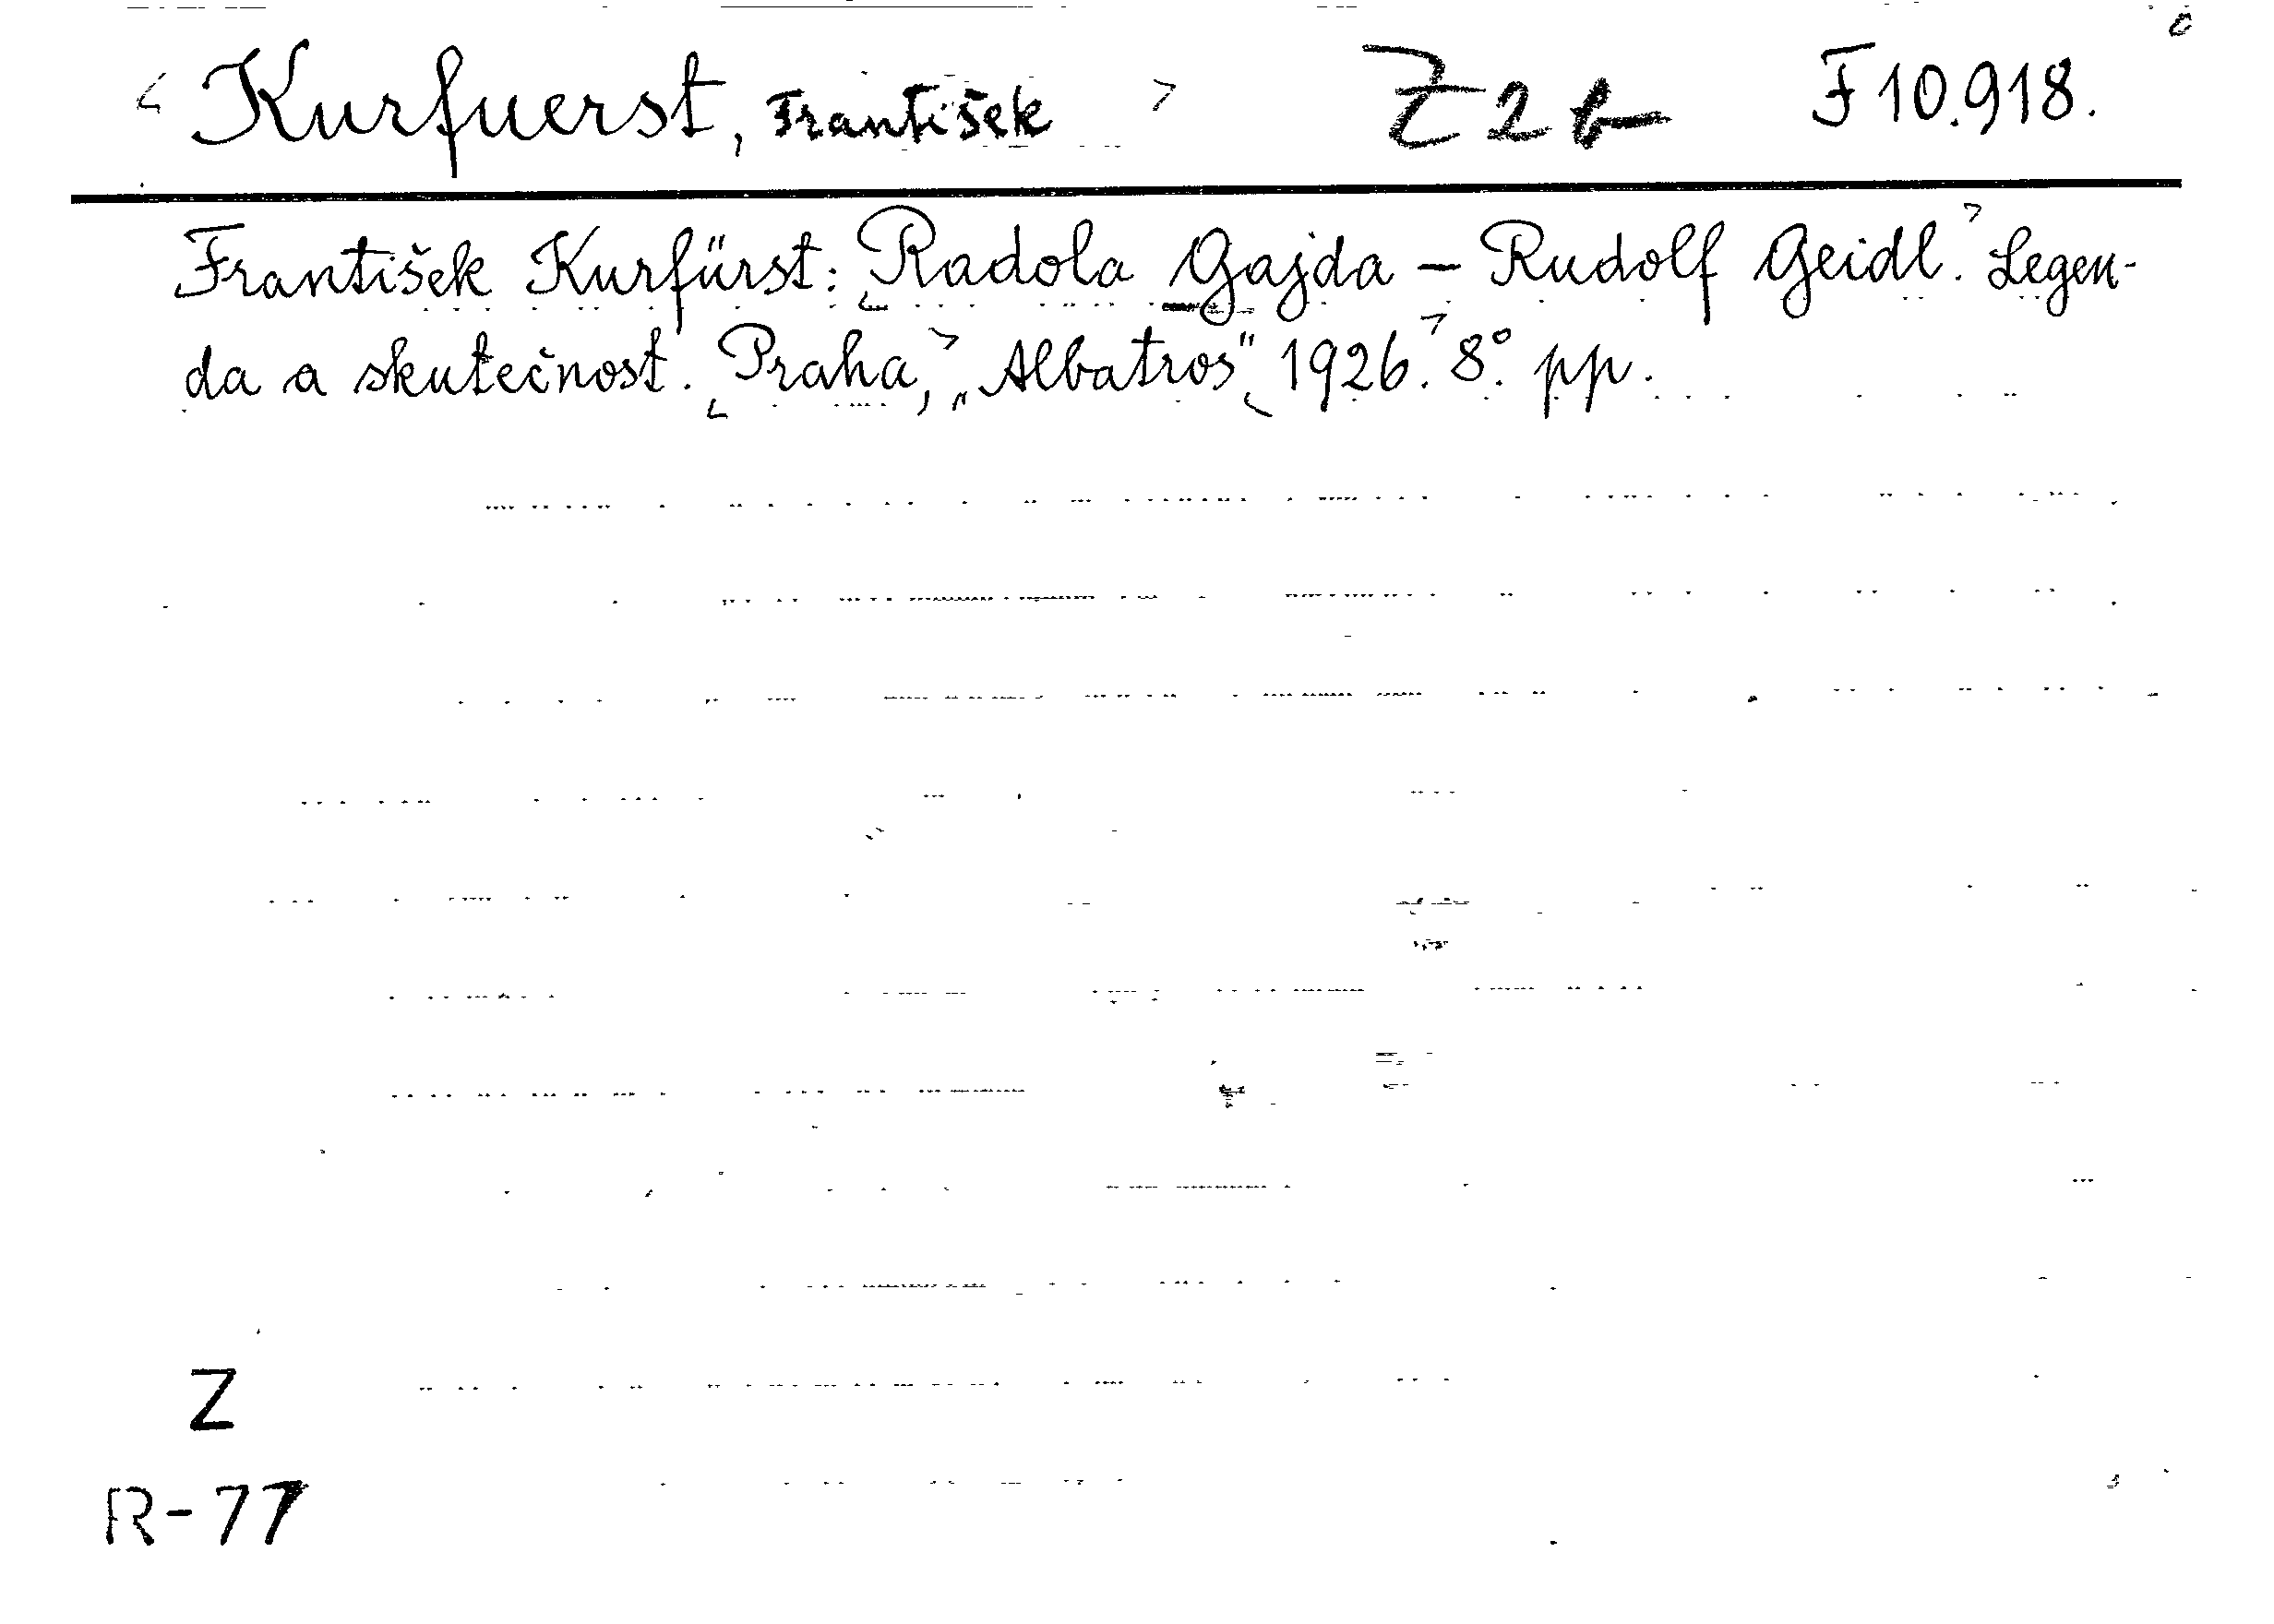 < Kurfuerst, František > Z 2 b F 10.918.
František Kurfürst: Radola Gajda – Rudolf Geidl. Legen-
da a skutečnost. Praha, „Albatros“, 1926. 8°. pp.
Z
R-77